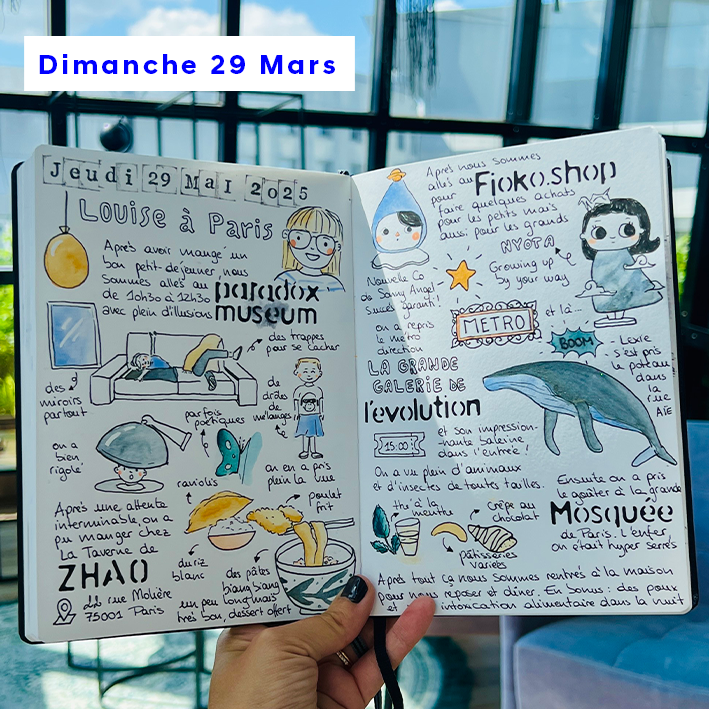 Dimanche 29 Mars
Jeudi 29 Mai 2025
Louise à Paris
Après avoir mangé un
bon petit-déjeuner nous
sommes allés au
de 10h30 à 12h30 paradox
avec plein d'illusions museum
des trappes
pour se cacher
des
miroirs
partout
de
drôles
de
mélanges
parfois
poétiques
on a
bien
rigolé
on en a pris
plein la vue
raviolis
poulet
frit
Après une attente
interminable, on a
pu manger chez
La Taverne de
ZHAO
rue Molière
75001 Paris
du riz
blanc
des pâtes
biang biang
un peu long mais
très bon, dessert offert
Après nous sommes
allés au Fioko.shop
pour
faire quelques achats
pour les petits mais
aussi pour les grands
NYOTA
Growing up
by your way
Nouvelle Co
de Sonny Angel
succès garanti !
on a repris
le métro
direction
METRO
et là..
BOOM
Lexie
s'est pris
le poteau
dans
la
rue
AÏE
LA GRANDE
GALERIE DE
l'évolution
15:00
et son impression-
nante baleine
dans l'entrée !
On a vu plein d'animaux
et d'insectes de toutes tailles.
Ensuite on a pris
le goûter à la grande
Mosquée
de Paris. L'enfer,
on était hyper serrés
thé à la
menthe
crêpe au
chocolat
pâtisseries
variées
Après tout ça nous sommes rentrés à la maison
pour nous reposer et dîner. En bonus : des poux
et intoxication alimentaire dans la nuit